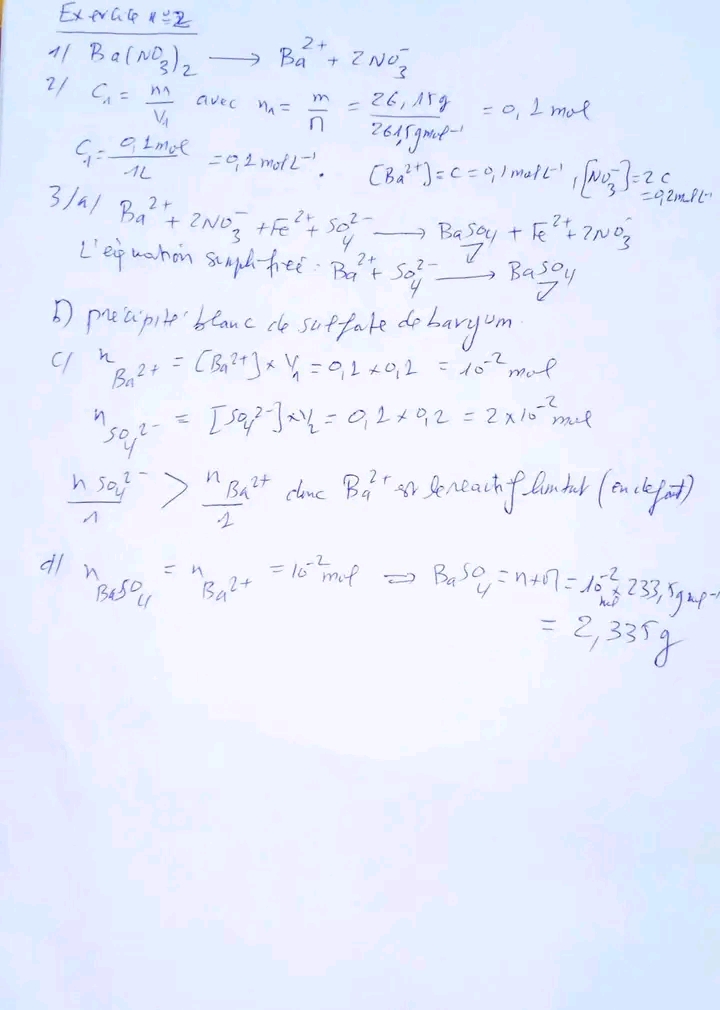 Exercice n°=2
1/ Ba(NO₃)₂ ⟶ Ba²⁺ + 2NO₃⁻
2/ C₁ = n₁/V₁ avec n₁ = m/M = 26,15g/261,5gmol⁻¹ = 0,1 mol
C₁ = 0,1mol/1L = 0,1 molL⁻¹. [Ba²⁺] = C = 0,1 molL⁻¹, [NO₃⁻] = 2C = 0,2molL⁻¹
3/a/ Ba²⁺ + 2NO₃⁻ + Fe²⁺ + SO₄²⁻ ⟶ BaSO₄ + Fe²⁺ + 2NO₃⁻
L'équation simplifiée : Ba²⁺ + SO₄²⁻ ⟶ BaSO₄
b) précipité blanc de sulfate de baryum
c/ n Ba²⁺ = [Ba²⁺] × V₁ = 0,1 × 0,1 = 10⁻² mol
n SO₄²⁻ = [SO₄²⁻] × V₂ = 0,1 × 0,2 = 2 × 10⁻² mol
n SO₄²⁻/1 > n Ba²⁺/1 donc Ba²⁺ est le réactif limitant (en défaut)
d/ n BaSO₄ = n Ba²⁺ = 10⁻² mol ⇒ BaSO₄ = n × M = 10⁻² mol × 233,5g mol⁻¹
= 2,335g